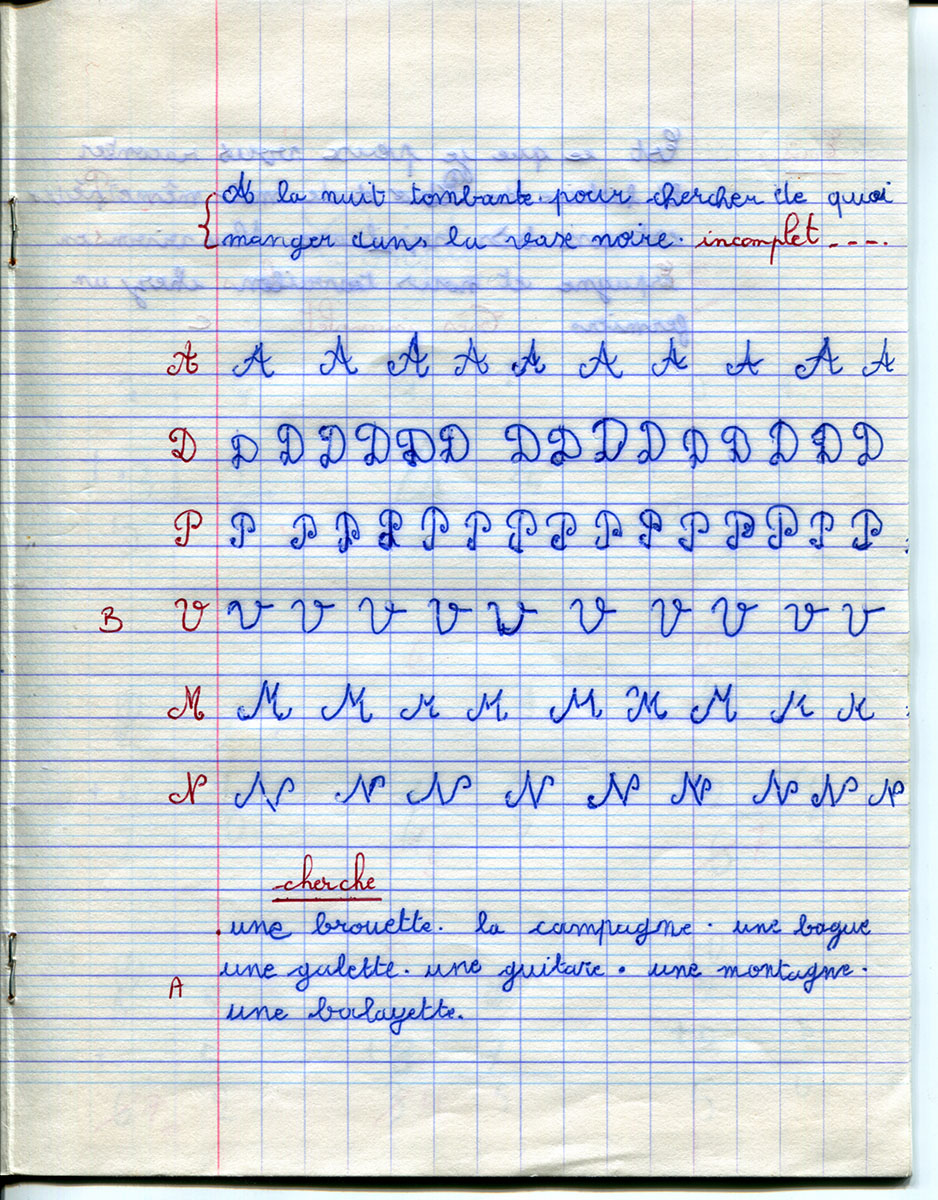 A la nuit tombante pour chercher de quoi
manger dans la vase noire. incomplet ----.
A A A A A A A A A A A
D D D D D D D D D D D D D D D D
P P P P P P P P P P P P P P P P
B V V V V V V V V V V V
M M M M M M M M M M
N N N N N N N N N N
cherche
une brouette. la campagne. une bague
une galette. une guitare. une montagne.
A
une balayette.